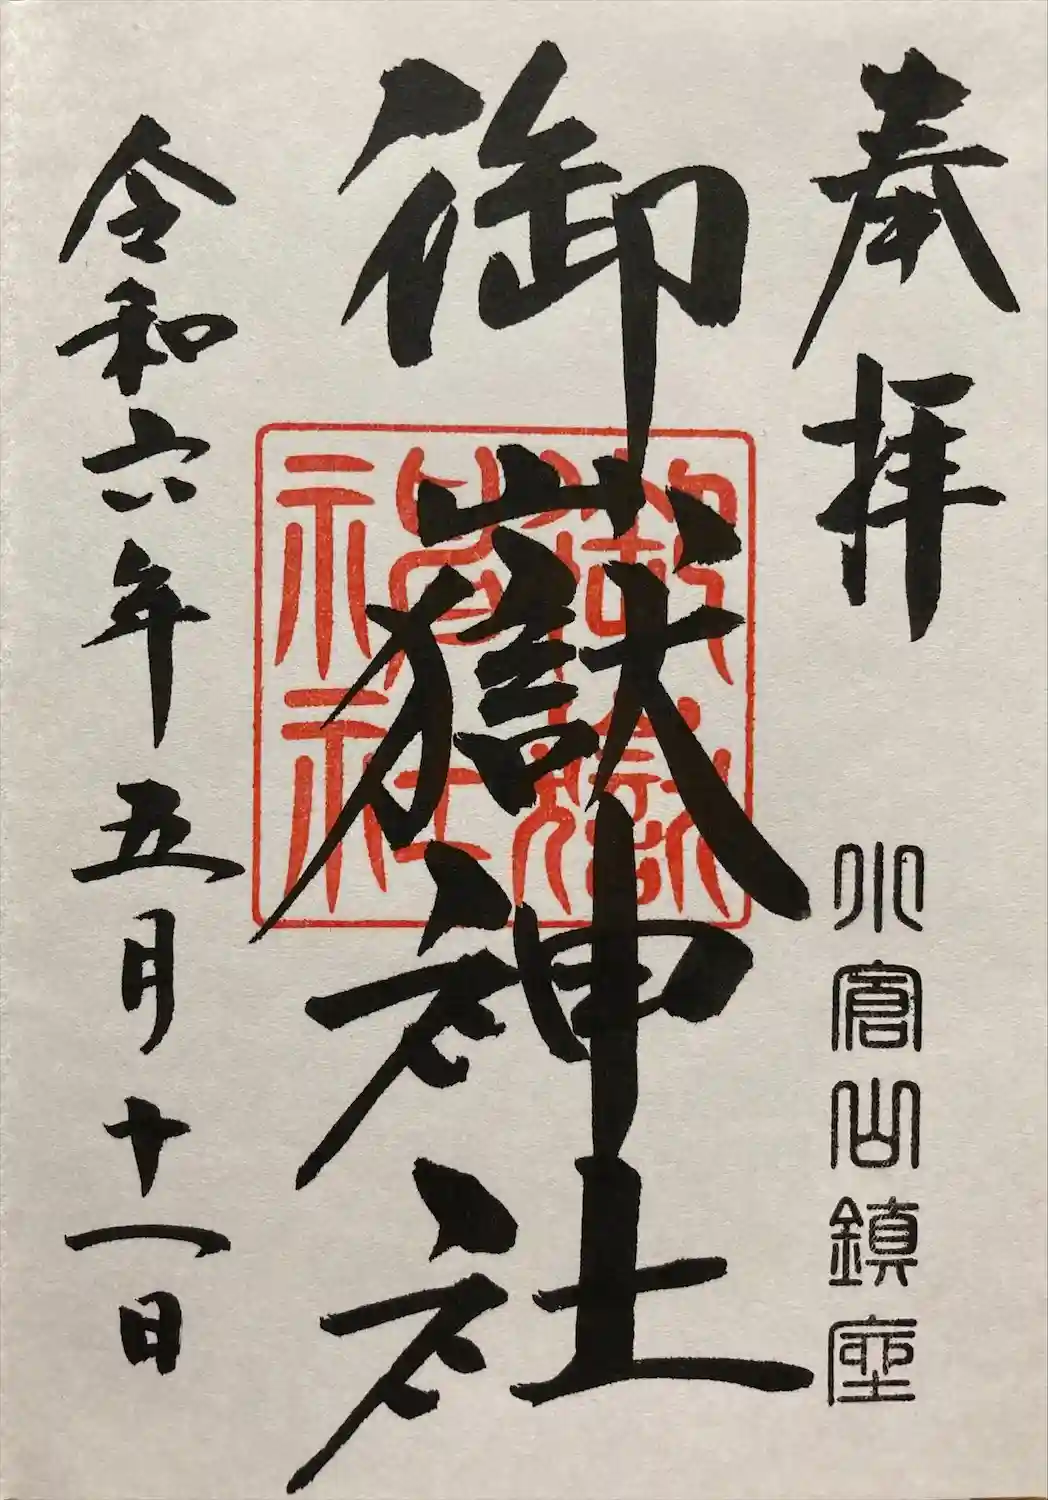 奉拝
小倉山鎮座
御嶽神社
御嶽
神社
令和六年五月十一日